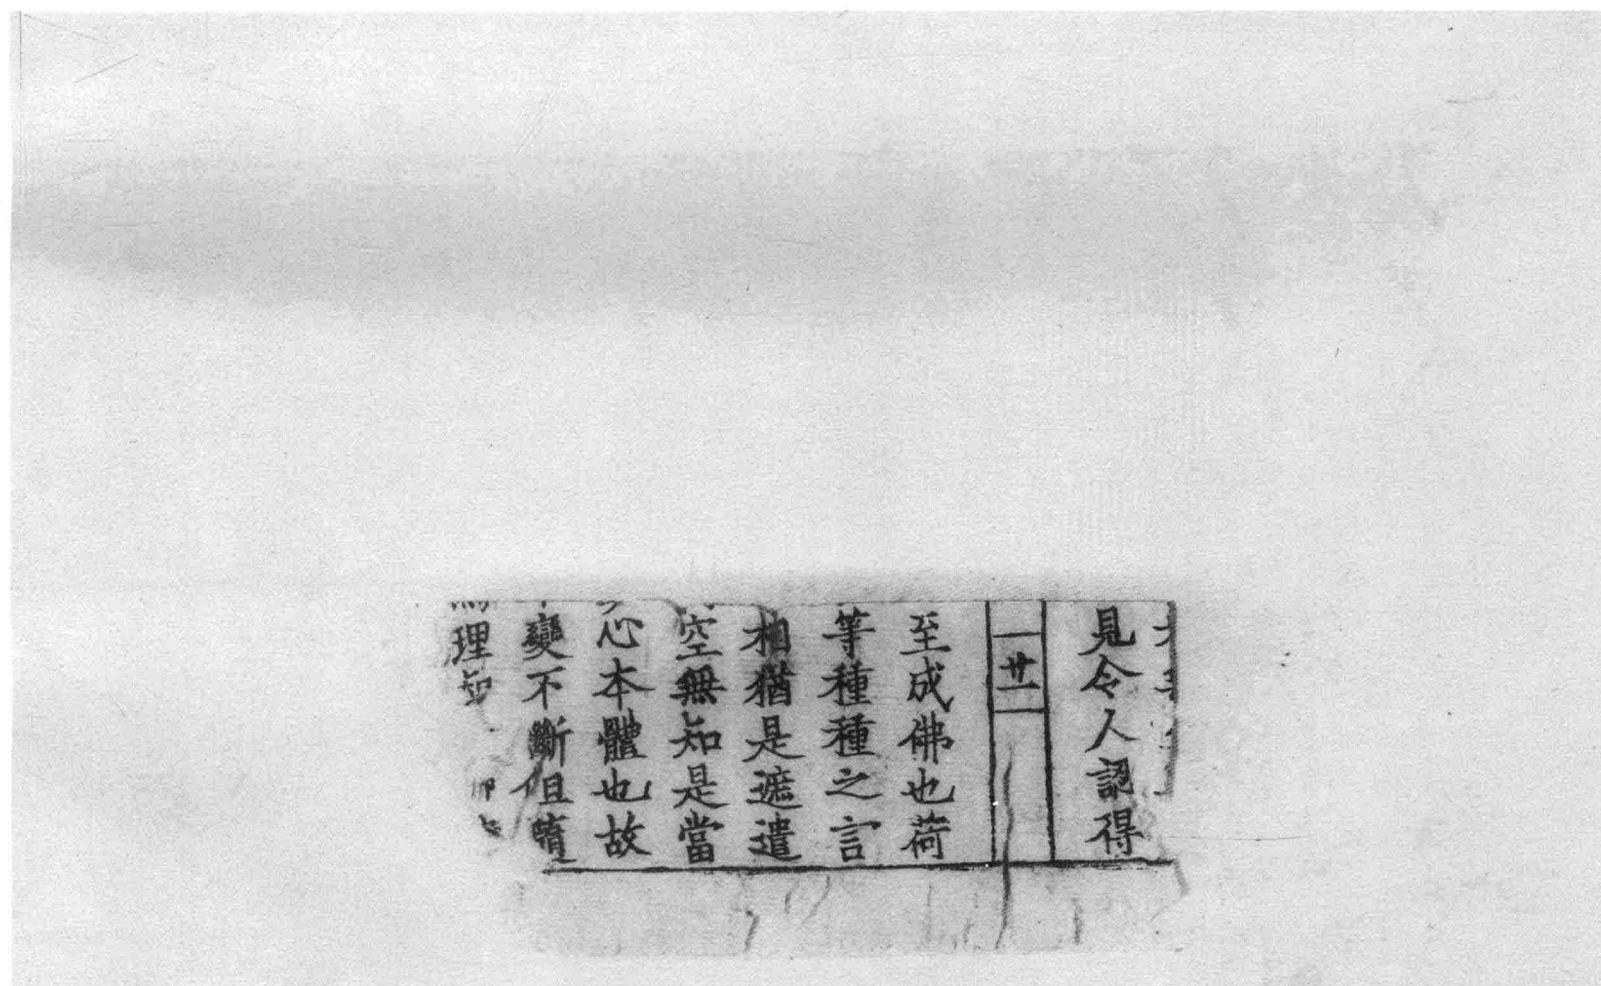 見令人認得
廿一
至成佛也荷
等種種之言
相猶是遮遣
空無知是當
心本體也故
變不斷但隨
理知